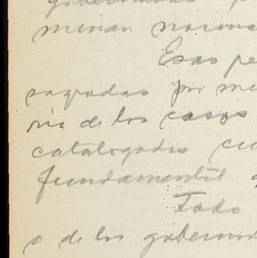 minan naciona
Esas pe
sagradas por me
ria de los casos
catalogados cu
fundamental
Todo
o de los gobernad